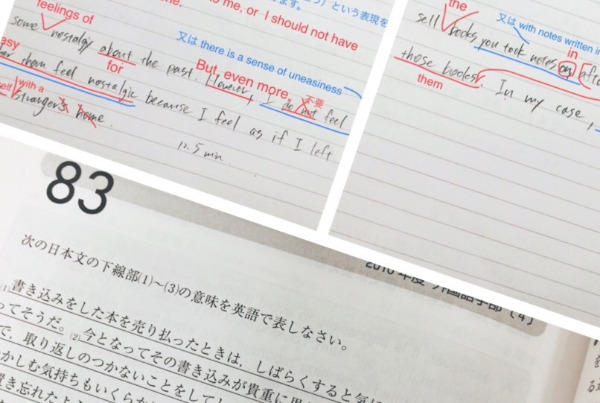 feelings of
to me, or I should not have
some nostalgy about the past. However, I do not feel
for
又は there is a sense of uneasiness
But, even more,
不要
than feel nostalgic because I feel as if I left
with a
stranger's home.
12.5 min
the
又は with notes written in
sell books you took notes on
in
those books. In my case,
them
83
2010年度 外国語学部 〔4〕
次の日本文の下線部(1)~(3)の意味を英語で表しなさい。
(1)書き込みをした本を売り払ったときは,しばらくすると気に
ってそうだ。(2)今となってその書き込みが貴重に思
で,取り返しのつかないことをしてし
かしむ気持ちもいくらか